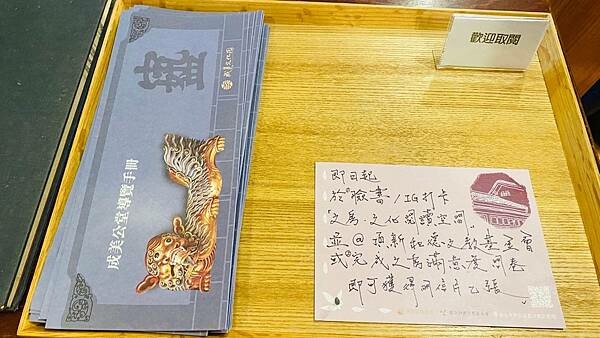 成美文化園
成美公堂導覽手冊
歡迎取閱
即日起
於"臉書"/IG打卡
"之為・文化閱讀空間"
並@頂新和德文教基金會
或完成之為滿意度問卷
即可獲得明信片乙張。